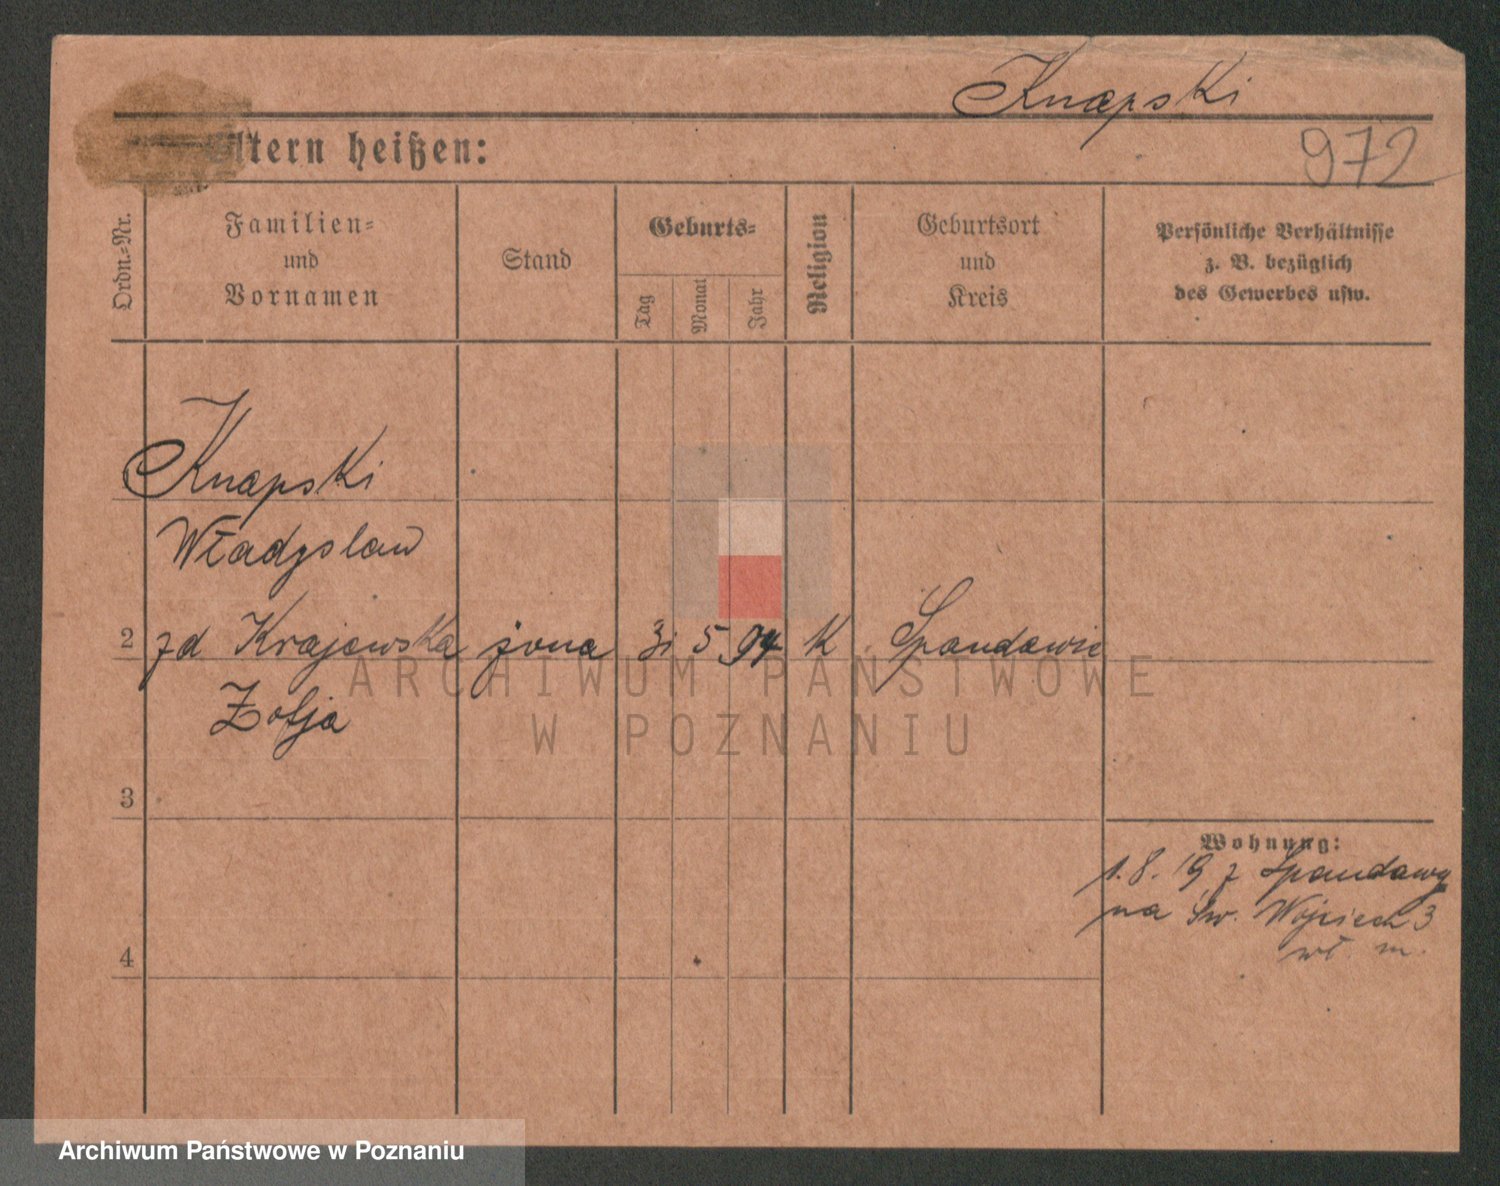 Knapski
972
ltern heißen:
Ordn.-Nr.
Familien- und Vornamen
Stand
Geburts-
Tag
Monat
Jahr
Religion
Geburtsort und Kreis
Persönliche Verhältnisse
z. B. bezüglich
des Gewerbes usw.
Knapski
Władysław
2 zd Krajewska żona 31 5 94 K Spandawie
Zofja
3
Wohnung:
1.8.19 z Spandawy
na św. Wojciech 3
wł. m.
4
ARCHIWUM PAŃSTWOWE
W POZNANIU
Archiwum Państwowe w Poznaniu